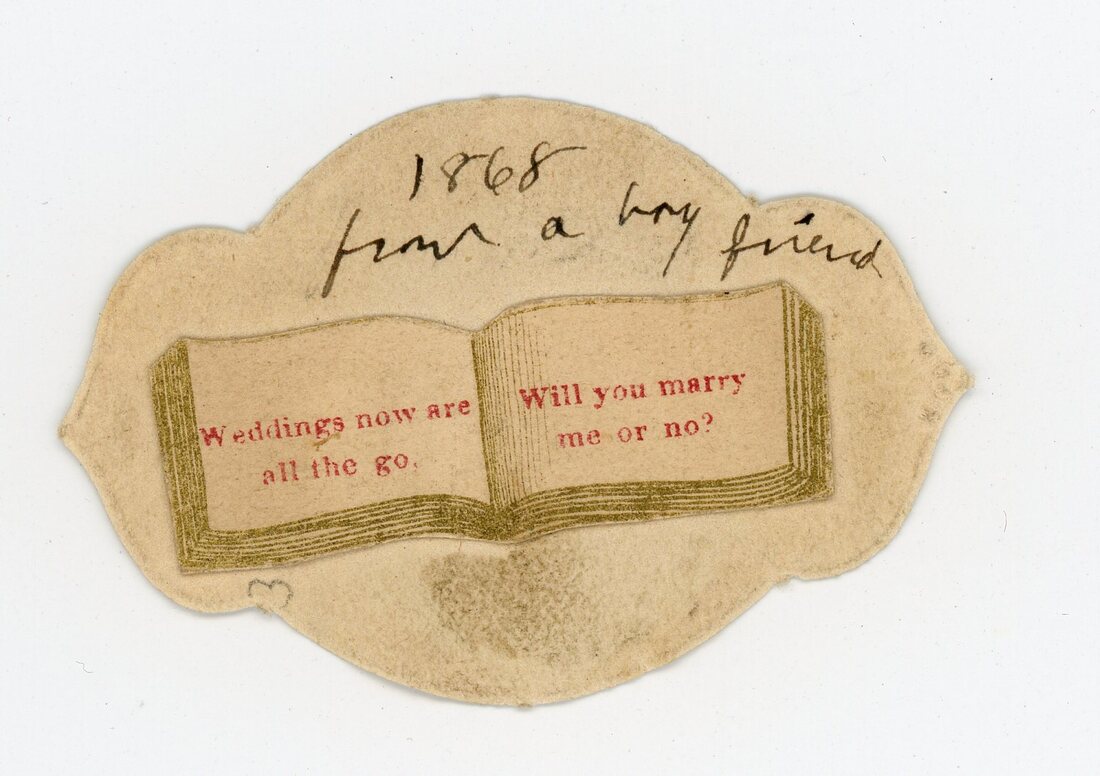 1868
from a boy friend
Weddings now are
all the go,
Will you marry
me or no?
3